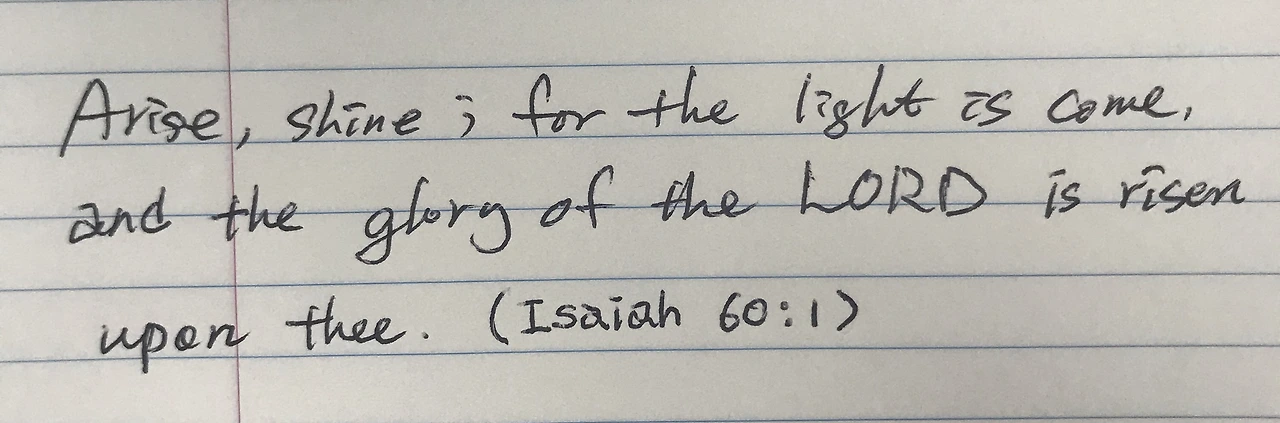 Arise, shine; for the light is come,
and the glory of the LORD is risen
upon thee. (Isaiah 60:1)